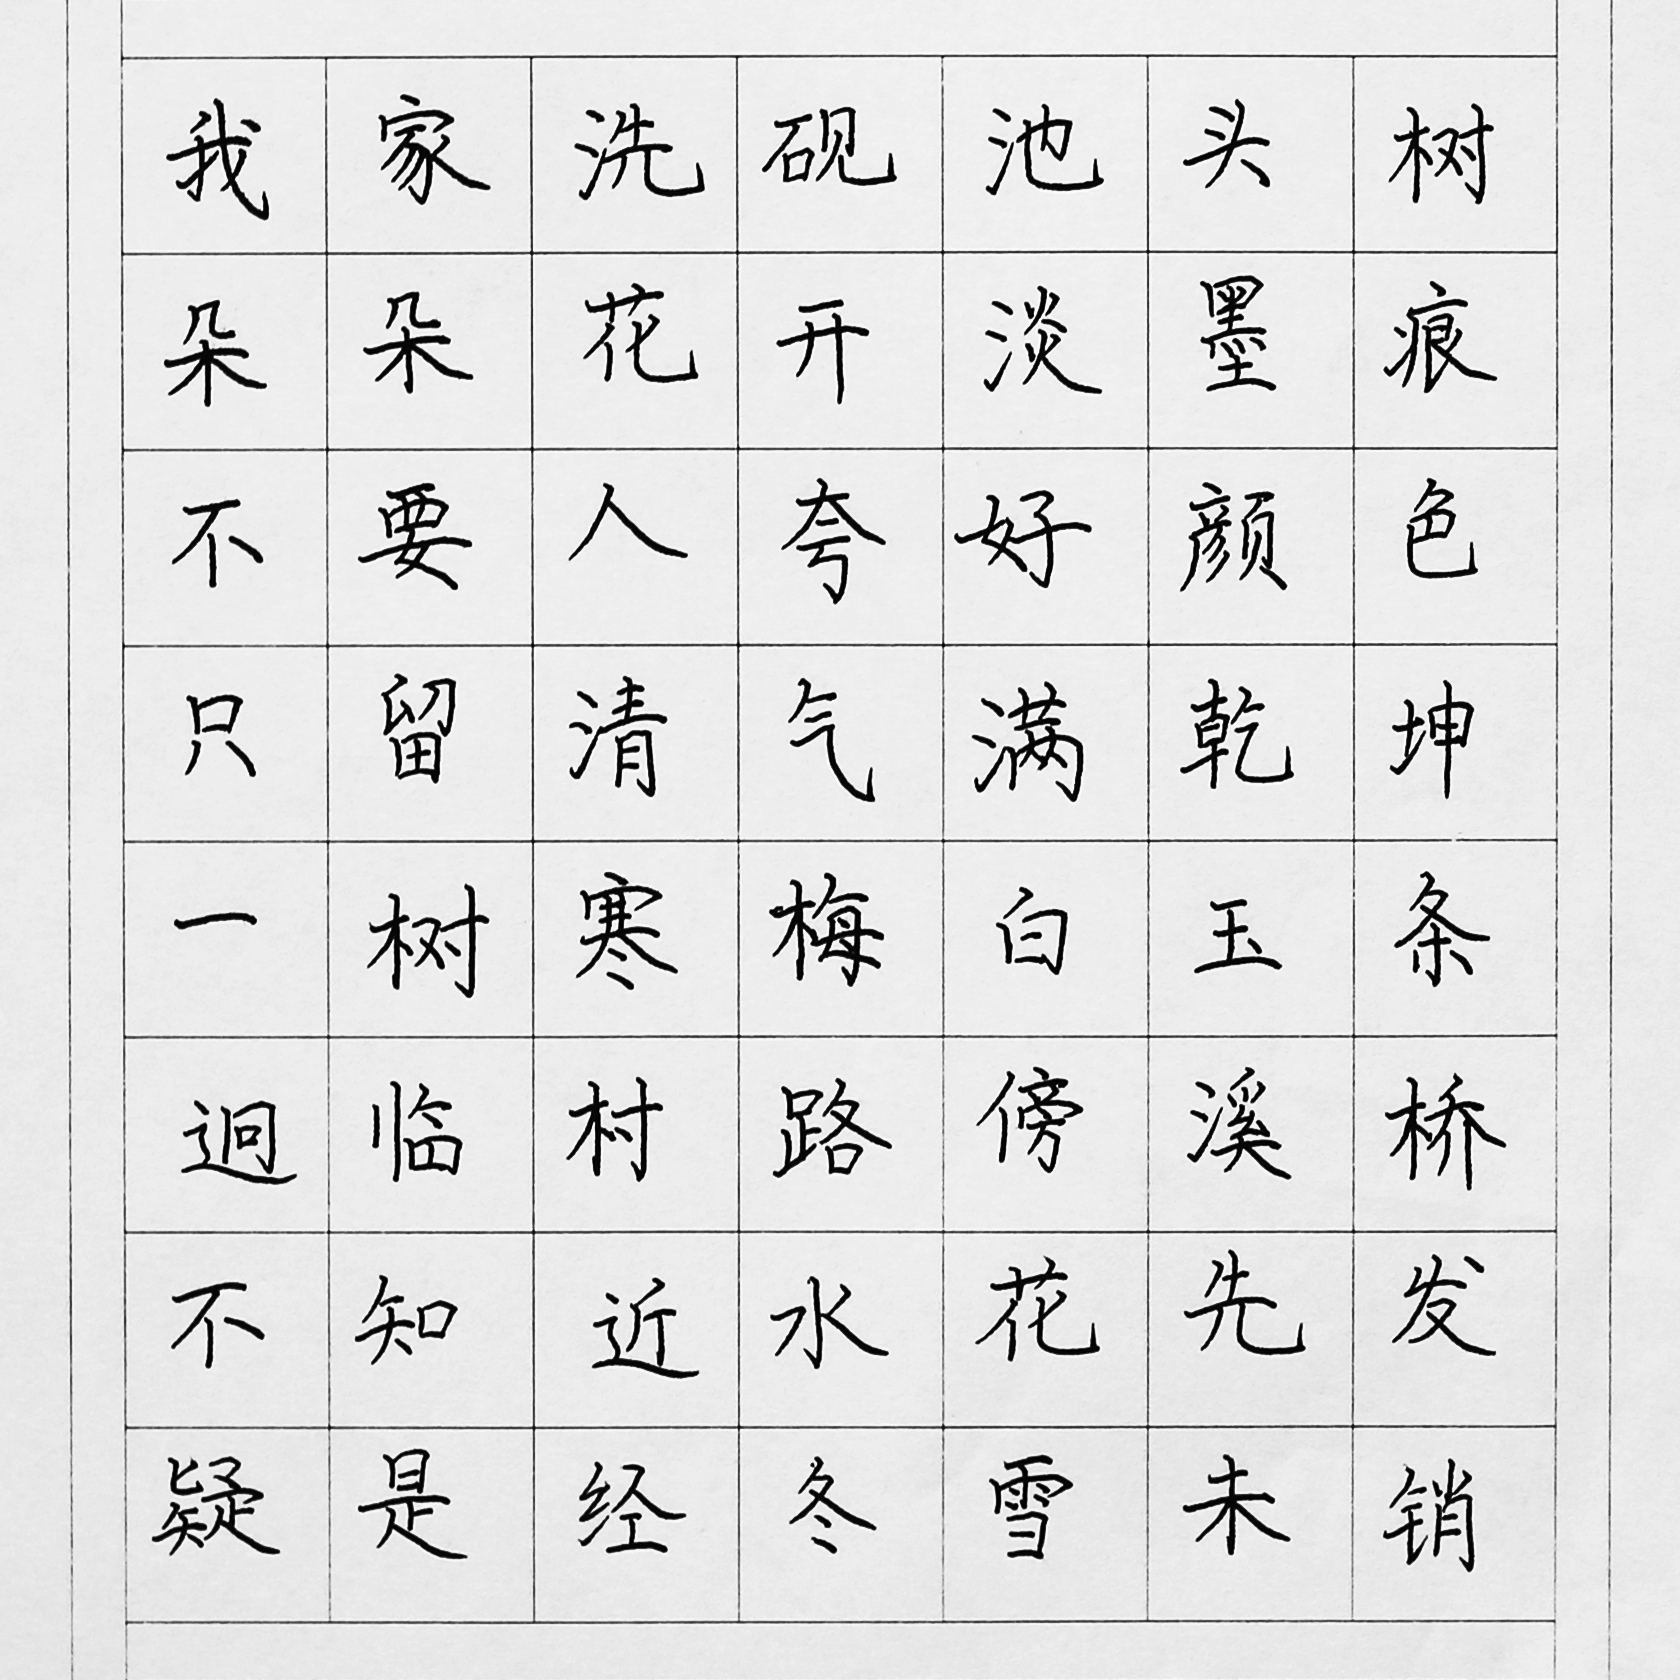 我家洗砚池头树
朵朵花开淡墨痕
不要人夸好颜色
只留清气满乾坤
一树寒梅白玉条
迥临村路傍溪桥
不知近水花先发
疑是经冬雪未销